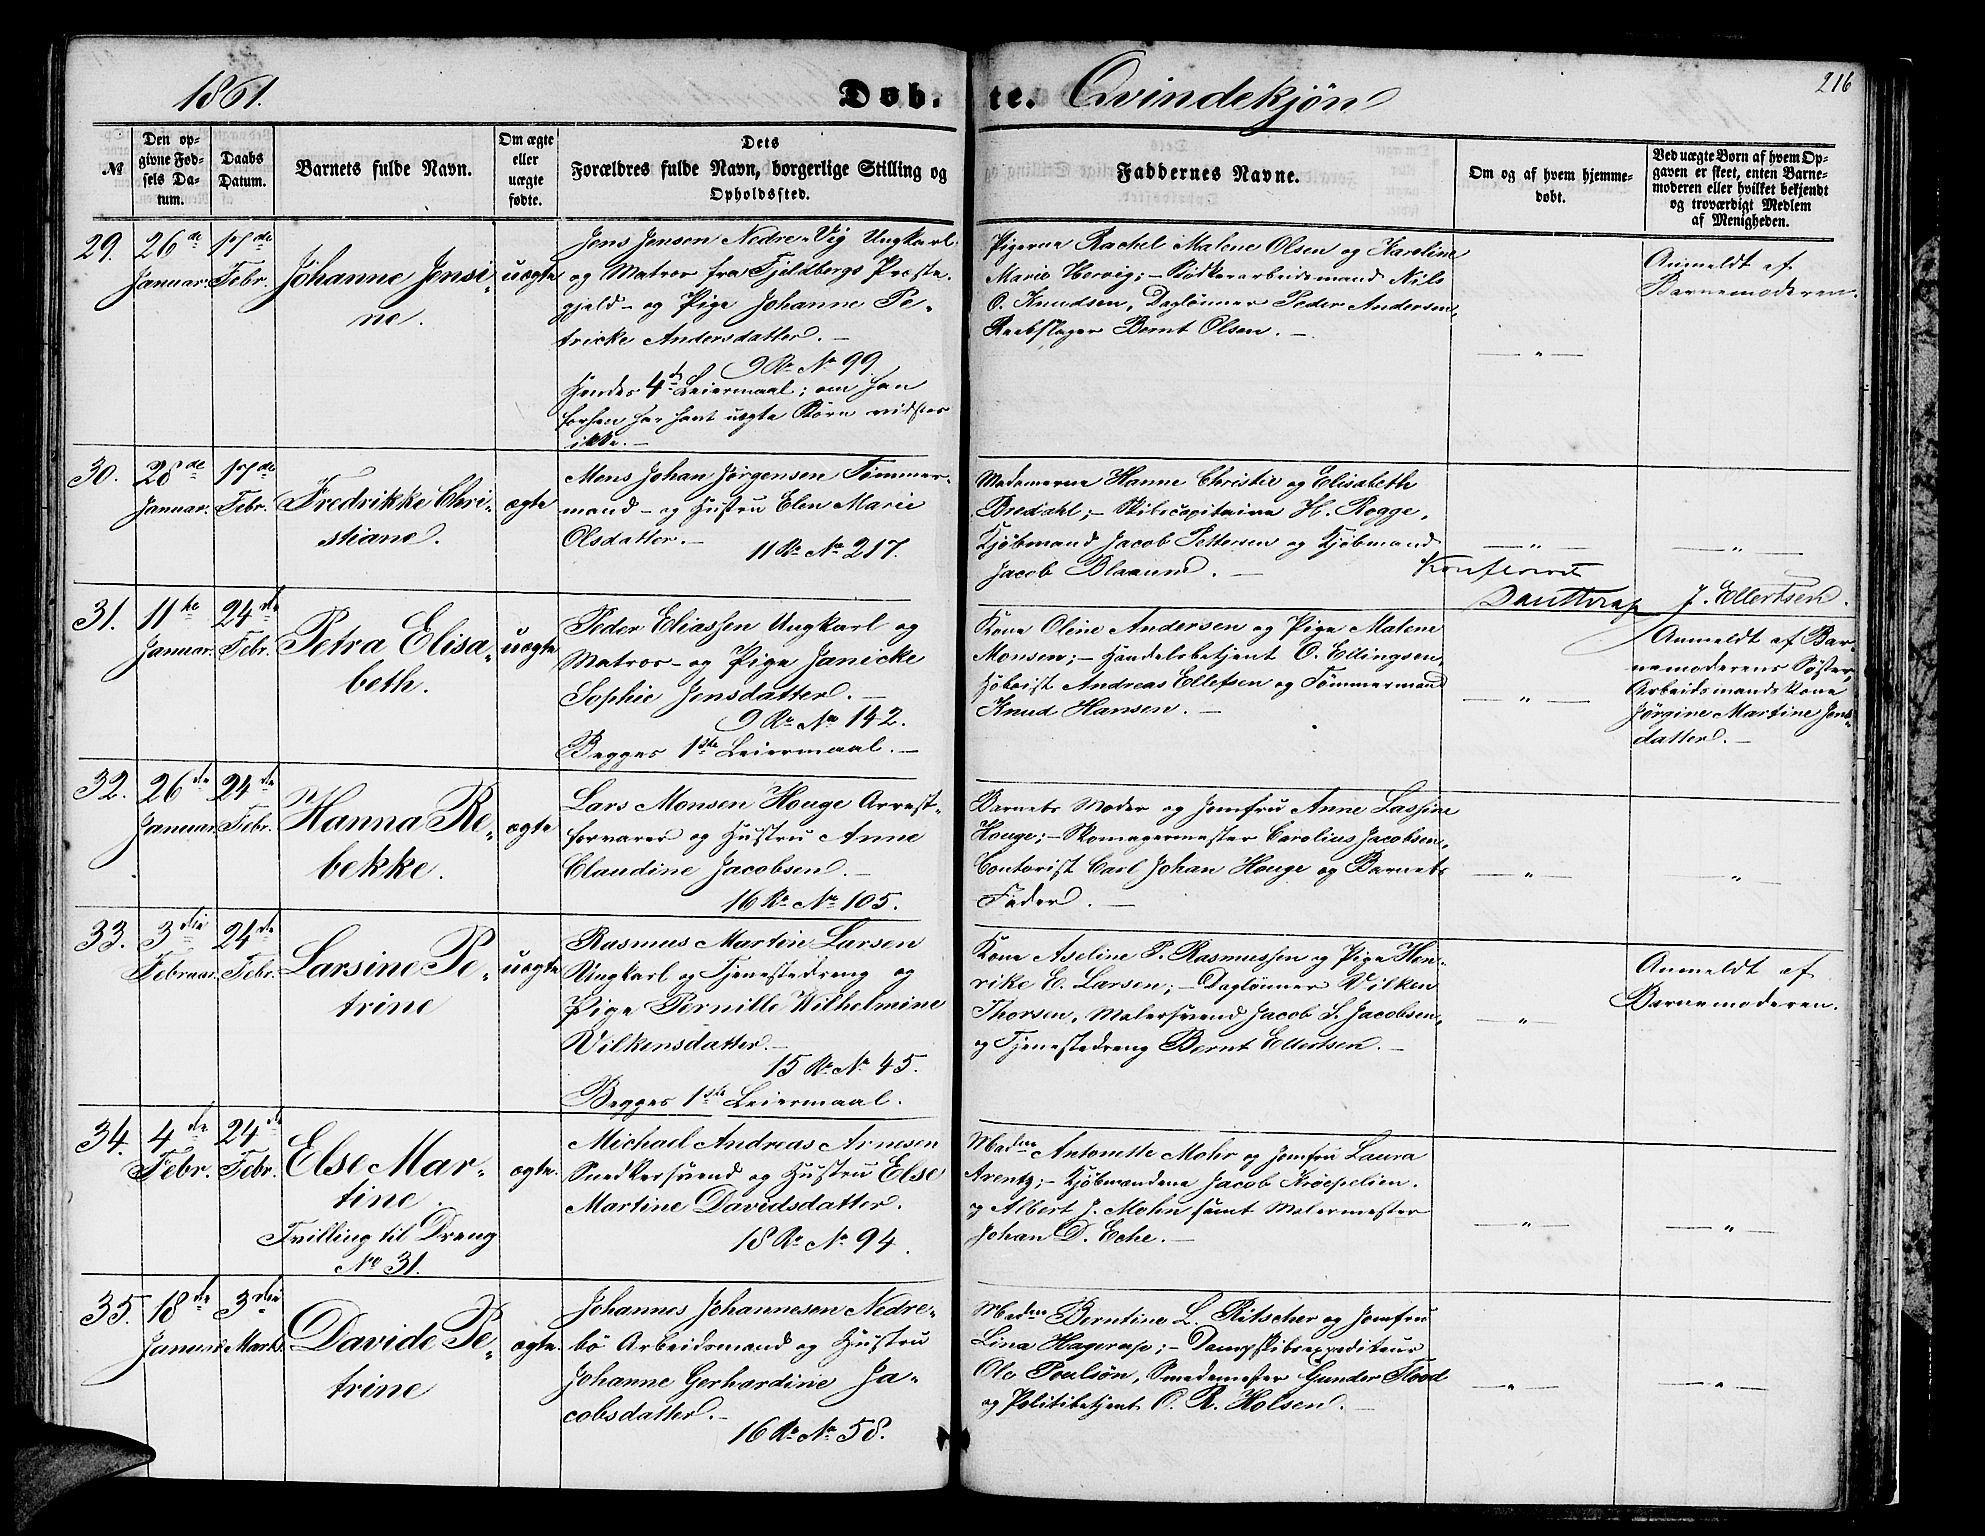 1861.
Døbte. Qvindekjøn
216
№
Den opgivne Fødsels Datum.
Daabs Datum.
Barnets fulde Navn.
Om ægte eller uægte fødte.
Dets Forældres fulde Navn, borgerlige Stilling og Opholdssted.
Faddernes Navne.
Om og af hvem hjemmedøbt.
Ved uægte Børn af hvem Opgaven er skeet, enten Barnemoderen eller hvilket bekjendt og troværdigt Medlem af Menigheden.
29.
26de Januar.
17de Febr.
Johanne Jensi-
ne.
uægte
Jens Jensen Nedre-Vig Ungkarl
og Matros fra Fjeldbergs Præste-
gjeld - og Pige Johanne Pe-
tricke Andersdatter. -
9 R. No 99.
Hendes 4de Leiermaal; om han
forhen har havt uægte Børn vidstes
ikke. -
Pigerne Rachel Malene Olsen og Karoline
Marie Hervig; - Bødkerarbeidsmand Nils
O. Knudsen, Daglønner Peder Andersen,
Reebslager Bernt Olsen. -
— " —
Anmeldt af
Barnemoderen.
30.
28de Januar.
17de Febr.
Fredrikke Chri-
stiane.
ægte
Mons Johan Jørgensen Tømmer-
mand - og Hustru Elen Marie
Olsdatter. -
11 R. No 217.
Madamerne Hanne Christie og Elisabeth
Bredahl; - Skibscapitaine H. Rogge,
Kjøbmand Jacob Pettersen og Kjøbmand
Jacob Blaauw. -
— " —
— " —
J. Ellertsen.
31.
11te Januar.
24de Febr.
Petra Elisa-
beth.
uægte
Peder Eliassen Ungkarl og
Matros - og Pige Janicke
Sophie Jensdatter. -
9 R. No 142.
Begges 1ste Leiermaal. -
Kone Oline Andersen og Pige Malene
Monsen; - Handelsbetjent O. Ellingsen,
Hoboist Andreas Ellefsen og Tømmermand
Knud Hansen. -
— " —
Anmeldt af Bar-
nemoderens Søster,
Arbeidsmandskone
Jørgine Martine Jens-
datter. -
32.
26de Januar.
24de Febr.
Hanna Re-
bekke.
ægte
Lars Monsen Houge Arrest-
forvarer og Hustru Anne
Claudine Jacobsen. -
16 R. No 105.
Barnets Moder og Jomfru Anne Lassine
Houge; - Skomagermester Carolius Jacobsen,
Contorist Carl Johan Houge og Barnets
Fader. -
— " —
— " —
33.
3die Februar.
24de Febr.
Larsine Pe-
trine
uægte
Rasmus Martin Larsen
Ungkarl og Tjenestedreng og
Pige Pernille Wilhelmine
Vilkensdatter. -
15 R. No 45.
Begges 1ste Leiermaal.
Kone Aseline P. Rasmussen og Pige Hen-
rike E. Larsen; - Daglønner Vilken
Thorsen, Malersvend Jacob L. Jacobsen,
og Tjenestedreng Bernt Ellertsen. -
— " —
Anmeldt af
Barnemoderen.
34.
4de Febr.
24de Febr.
Else Mar-
tine.
Tvilling til Dreng
No 31.
ægte.
Michael Andreas Arnesen
Snedkersvend og Hustru Else
Martine Davidsdatter.
18 R. No 94.
Madme Antonette Mohr og Jomfru Laura
Arentz; - Kjøbmændene Jacob Krøepelien,
og Albert J. Mohn samt Malermester
Johan D. Eche. -
— " —
— " —
35.
18de Januar
3die Marts
Davide Pe-
trine
ægte.
Johannes Johannesen Nedre-
bø Arbeidsmand og Hustru
Johanne Gerhardine Ja-
cobsdatter. -
16 R. No 58.
Madme Berntine L. Ritscher og Jomfru
Lina Hagerup; - Dampskibsexpediteur
Ole Poulsøn, Smedemester Gunder Flood
og Politibetjent O. R. Holsen. -
— " —
— " —